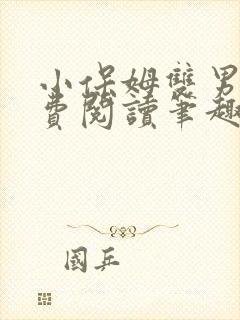 小保姆雙男
費閱讀筆趣
國乒